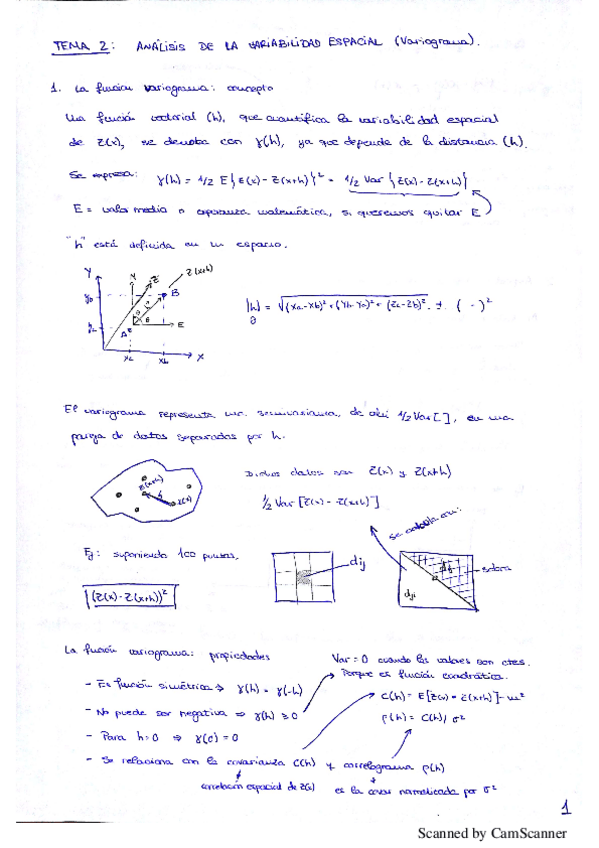 TEMA 2: ANÁLISIS DE LA VARIABILIDAD ESPACIAL (Variograma).
1. La función variograma: concepto
Una función vectorial (h), que cuantifica la variabilidad espacial
de Z(x), se denota con γ(h), ya que depende de la distancia (h).
Se expresa: γ(h) = 1/2 E{Z(x) - Z(x+h)}² = 1/2 Var {Z(x) - Z(x+h)}
E = valor medio o esperanza matemática, si queremos quitar E
"h" está definida en un espacio.
Y
N
Z
Z(x+h)
B
A
E
X
|h| = √(xa-xb)² + (Ya-Yb)² + (Za-Zb)²
El variograma representa una semivarianza, de ahí 1/2 Var[ ], en una
pareja de datos separados por h.
Z(x+h)
h
Z(x)
Dichos datos son Z(x) y Z(x+h)
1/2 Var [Z(x) - Z(x+h)]
se calcula en:
Ej: suponiendo 100 puntos,
[(Z(x) - Z(x+h))²
dij
dij
dji
sobra
La función variograma: propiedades
Var = 0 cuando los valores son ctes.
Porque es función cuadrática.
- Es función simétrica ⇒ γ(h) = γ(-h)
- No puede ser negativa ⇒ γ(h) ≥ 0
- Para h=0 ⇒ γ(0) = 0
- Se relaciona con la covarianza C(h) y correlograma ρ(h)
C(h) = E[Z(x) · Z(x+h)] - m²
ρ(h) = C(h)/σ²
correlación espacial de Z(x)
es la covar normalizada por σ²
1
Scanned by CamScanner